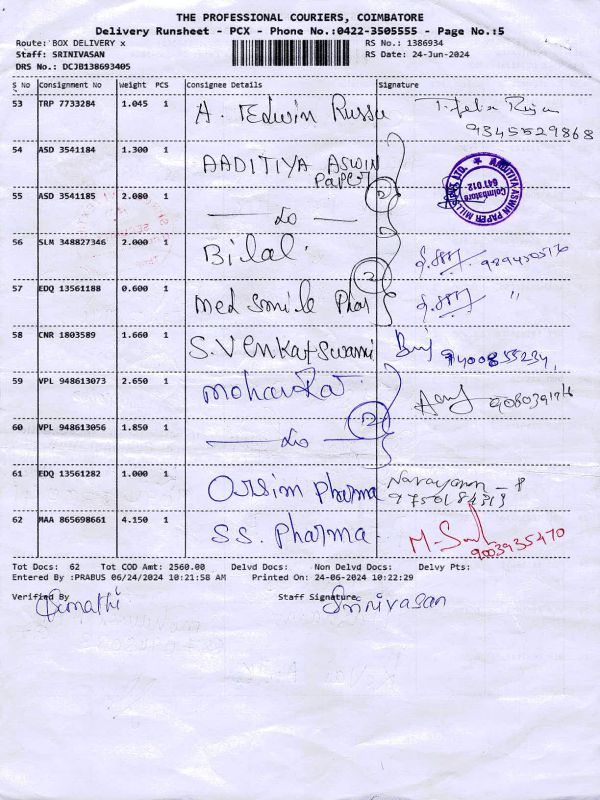 THE PROFESSIONAL COURIERS, COIMBATORE
Delivery Runsheet - PCX - Phone No.:0422-3505555 - Page No.:5
Route: BOX DELIVERY x
RS No.: 1386934
Staff: SRINIVASAN
RS Date: 24-Jun-2024
DRS No.: DCJB138693405
S No Consignment No Weight PCS Consignee Details Signature
53 TRP 7733284 1.045 1 A. Edwin Russu
9345529868
54 ASD 3541184 1.300 1 AADITIYA ASWIN
PaPer
AADITIYA ASWIN PAPER MILLS LTD.
Coimbatore
641 012
55 ASD 3541185 2.080 1 Do 2
56 SLM 348827346 2.000 1 Bilal.
2
57 EDQ 13561188 0.600 1 Med Smile Phar "
58 CNR 1803589 1.660 1 S. Venkatswami
9400855234
59 VPL 948613073 2.650 1
2
60 VPL 948613056 1.850 1 Do
61 EDQ 13561282 1.000 1 Orsim Pharma Narayanan - P
62 MAA 865698661 4.150 1 SS. Pharma.
9003935470
Tot Docs: 62 Tot COD Amt: 2560.00 Delvd Docs: Non Delvd Docs: Delvy Pts:
Entered By :PRABUS 06/24/2024 10:21:58 AM Printed On: 24-06-2024 10:22:29
Verified By Staff Signature
Srinivasan